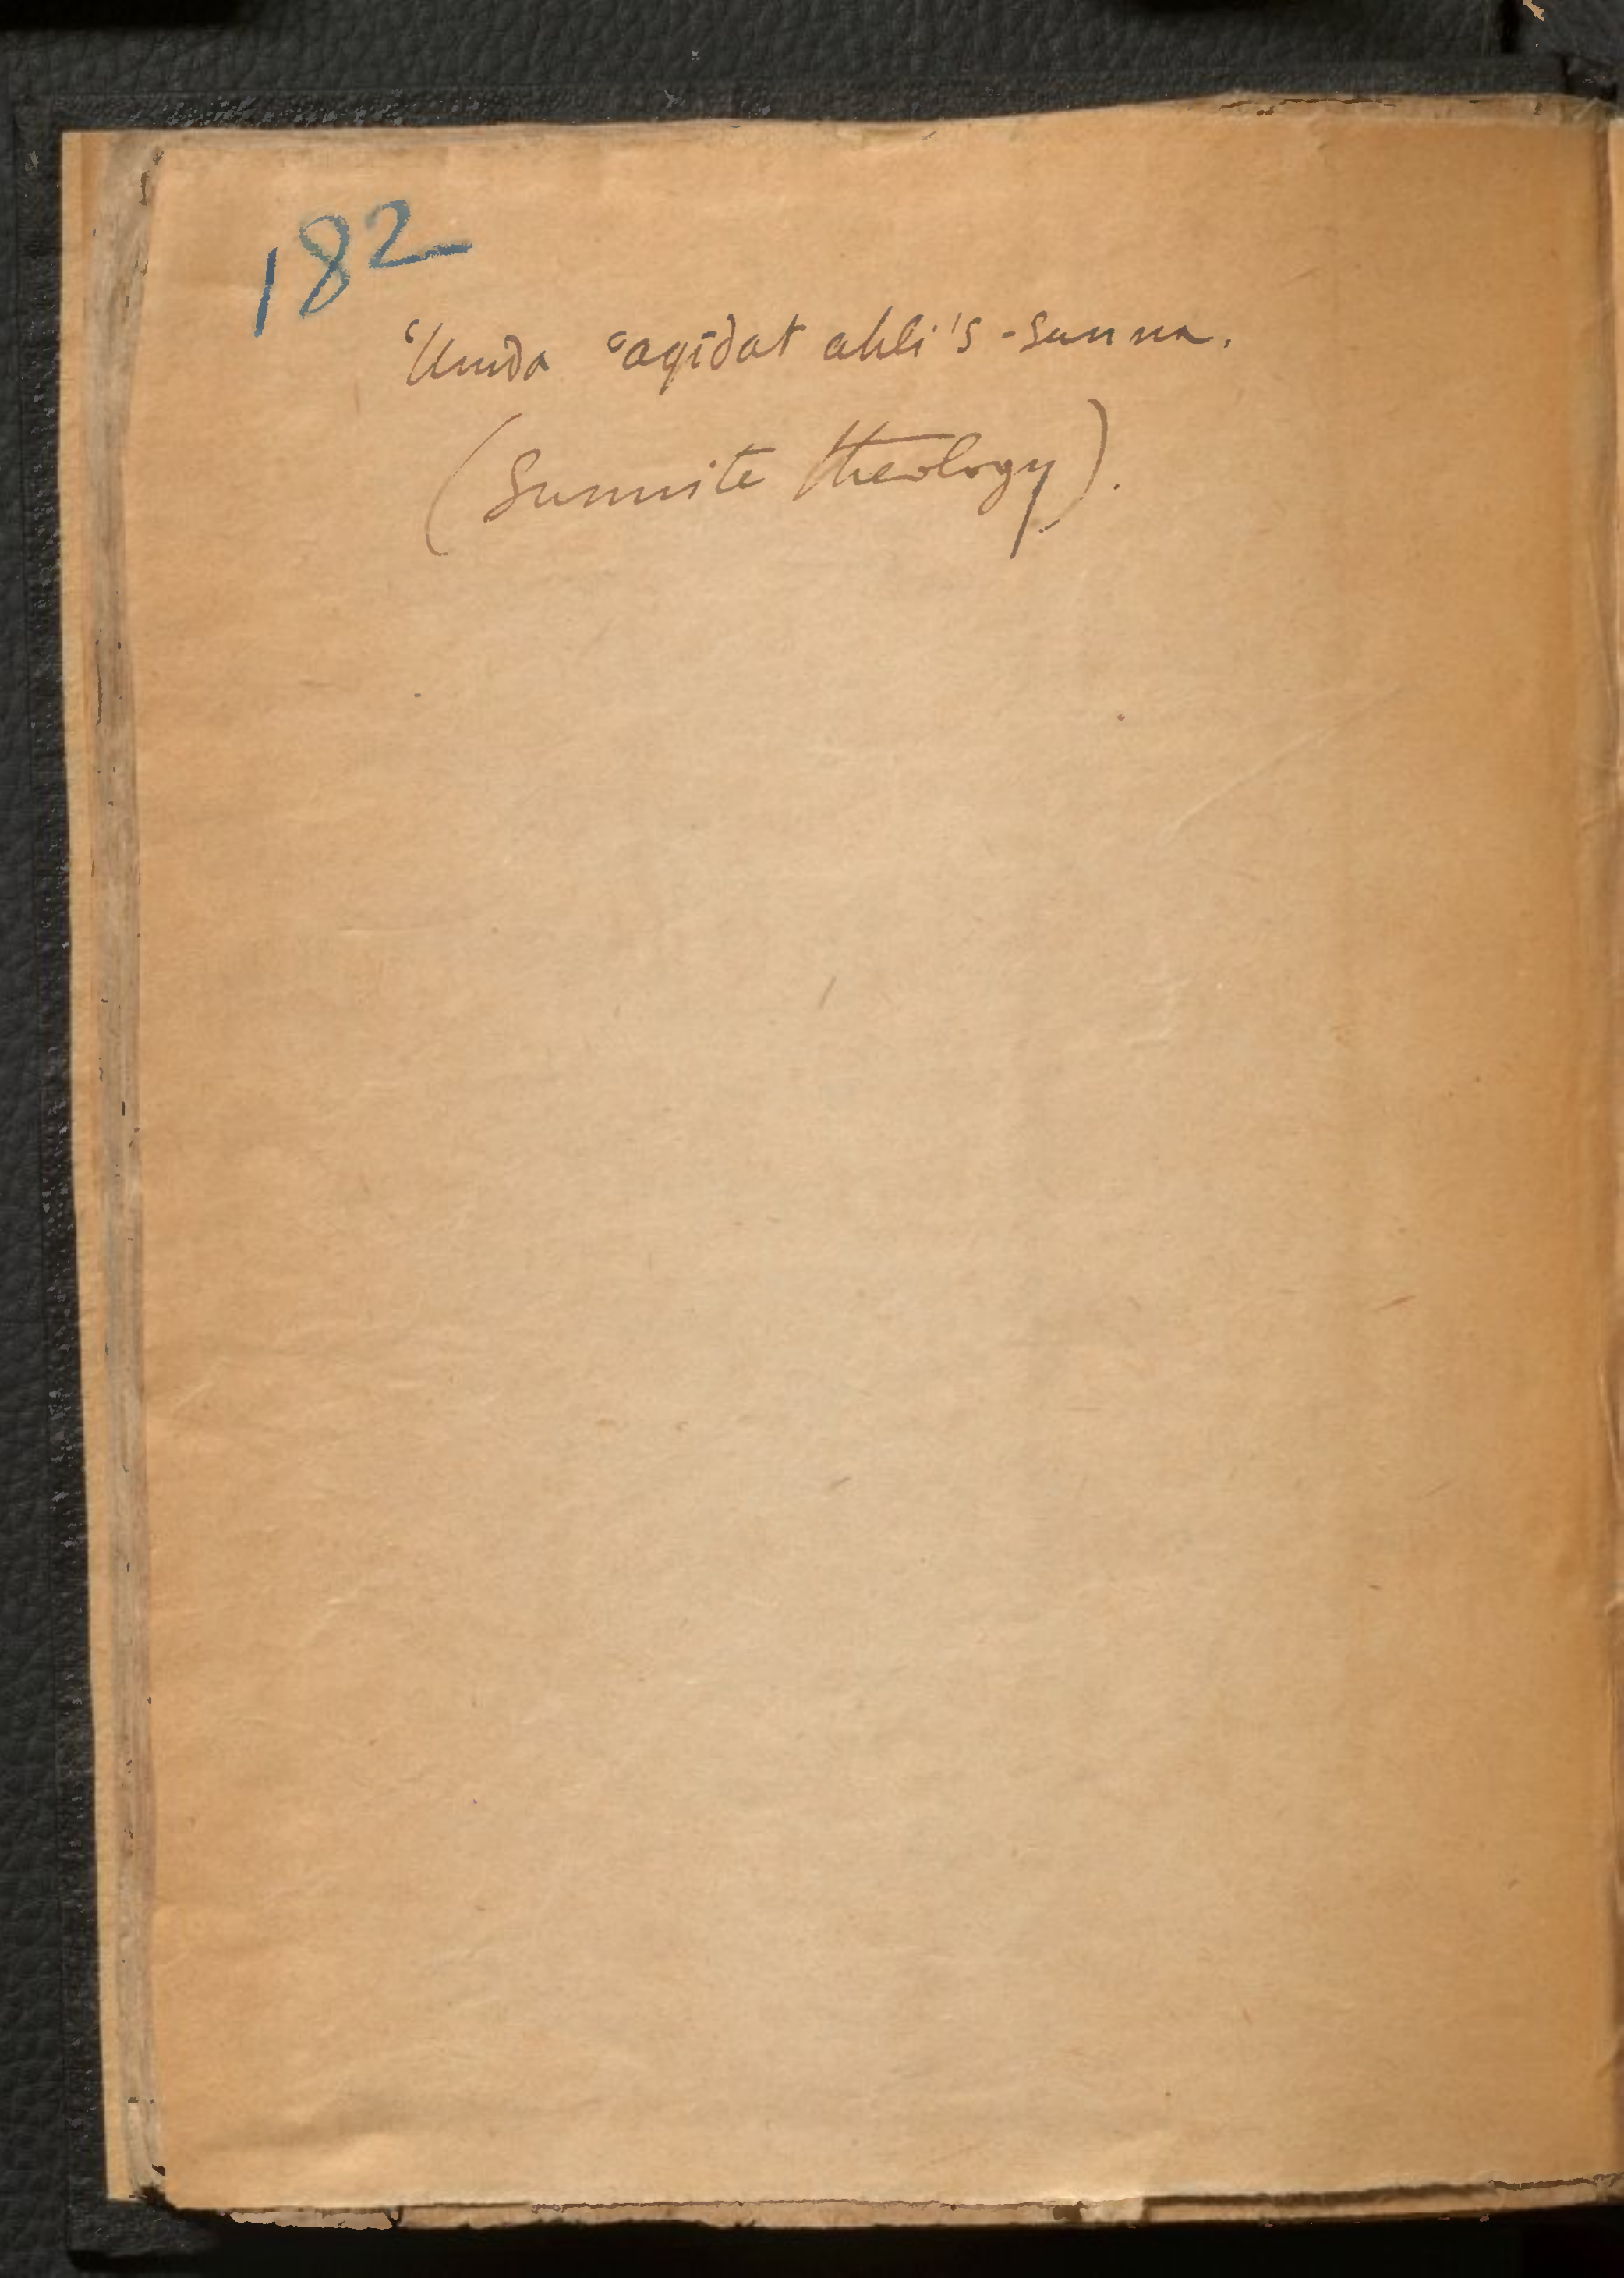 182
ʿUmda ʿaqīdat ahli's-sunna.
(Sunnite theology).